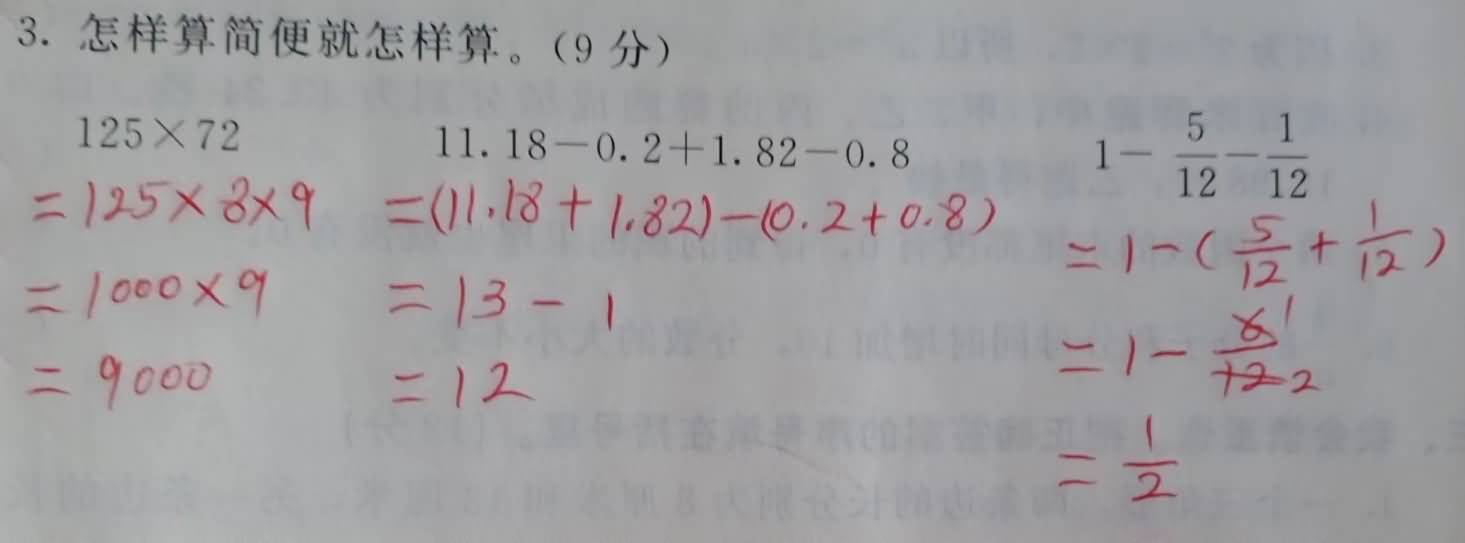 3. 怎样算简便就怎样算。(9 分)
125×72
=125×8×9
=1000×9
=9000
11.18-0.2+1.82-0.8
=(11.18+1.82)-(0.2+0.8)
=13-1
=12
1-5/12-1/12
=1-(5/12+1/12)
=1-6/12 1 2
=1/2